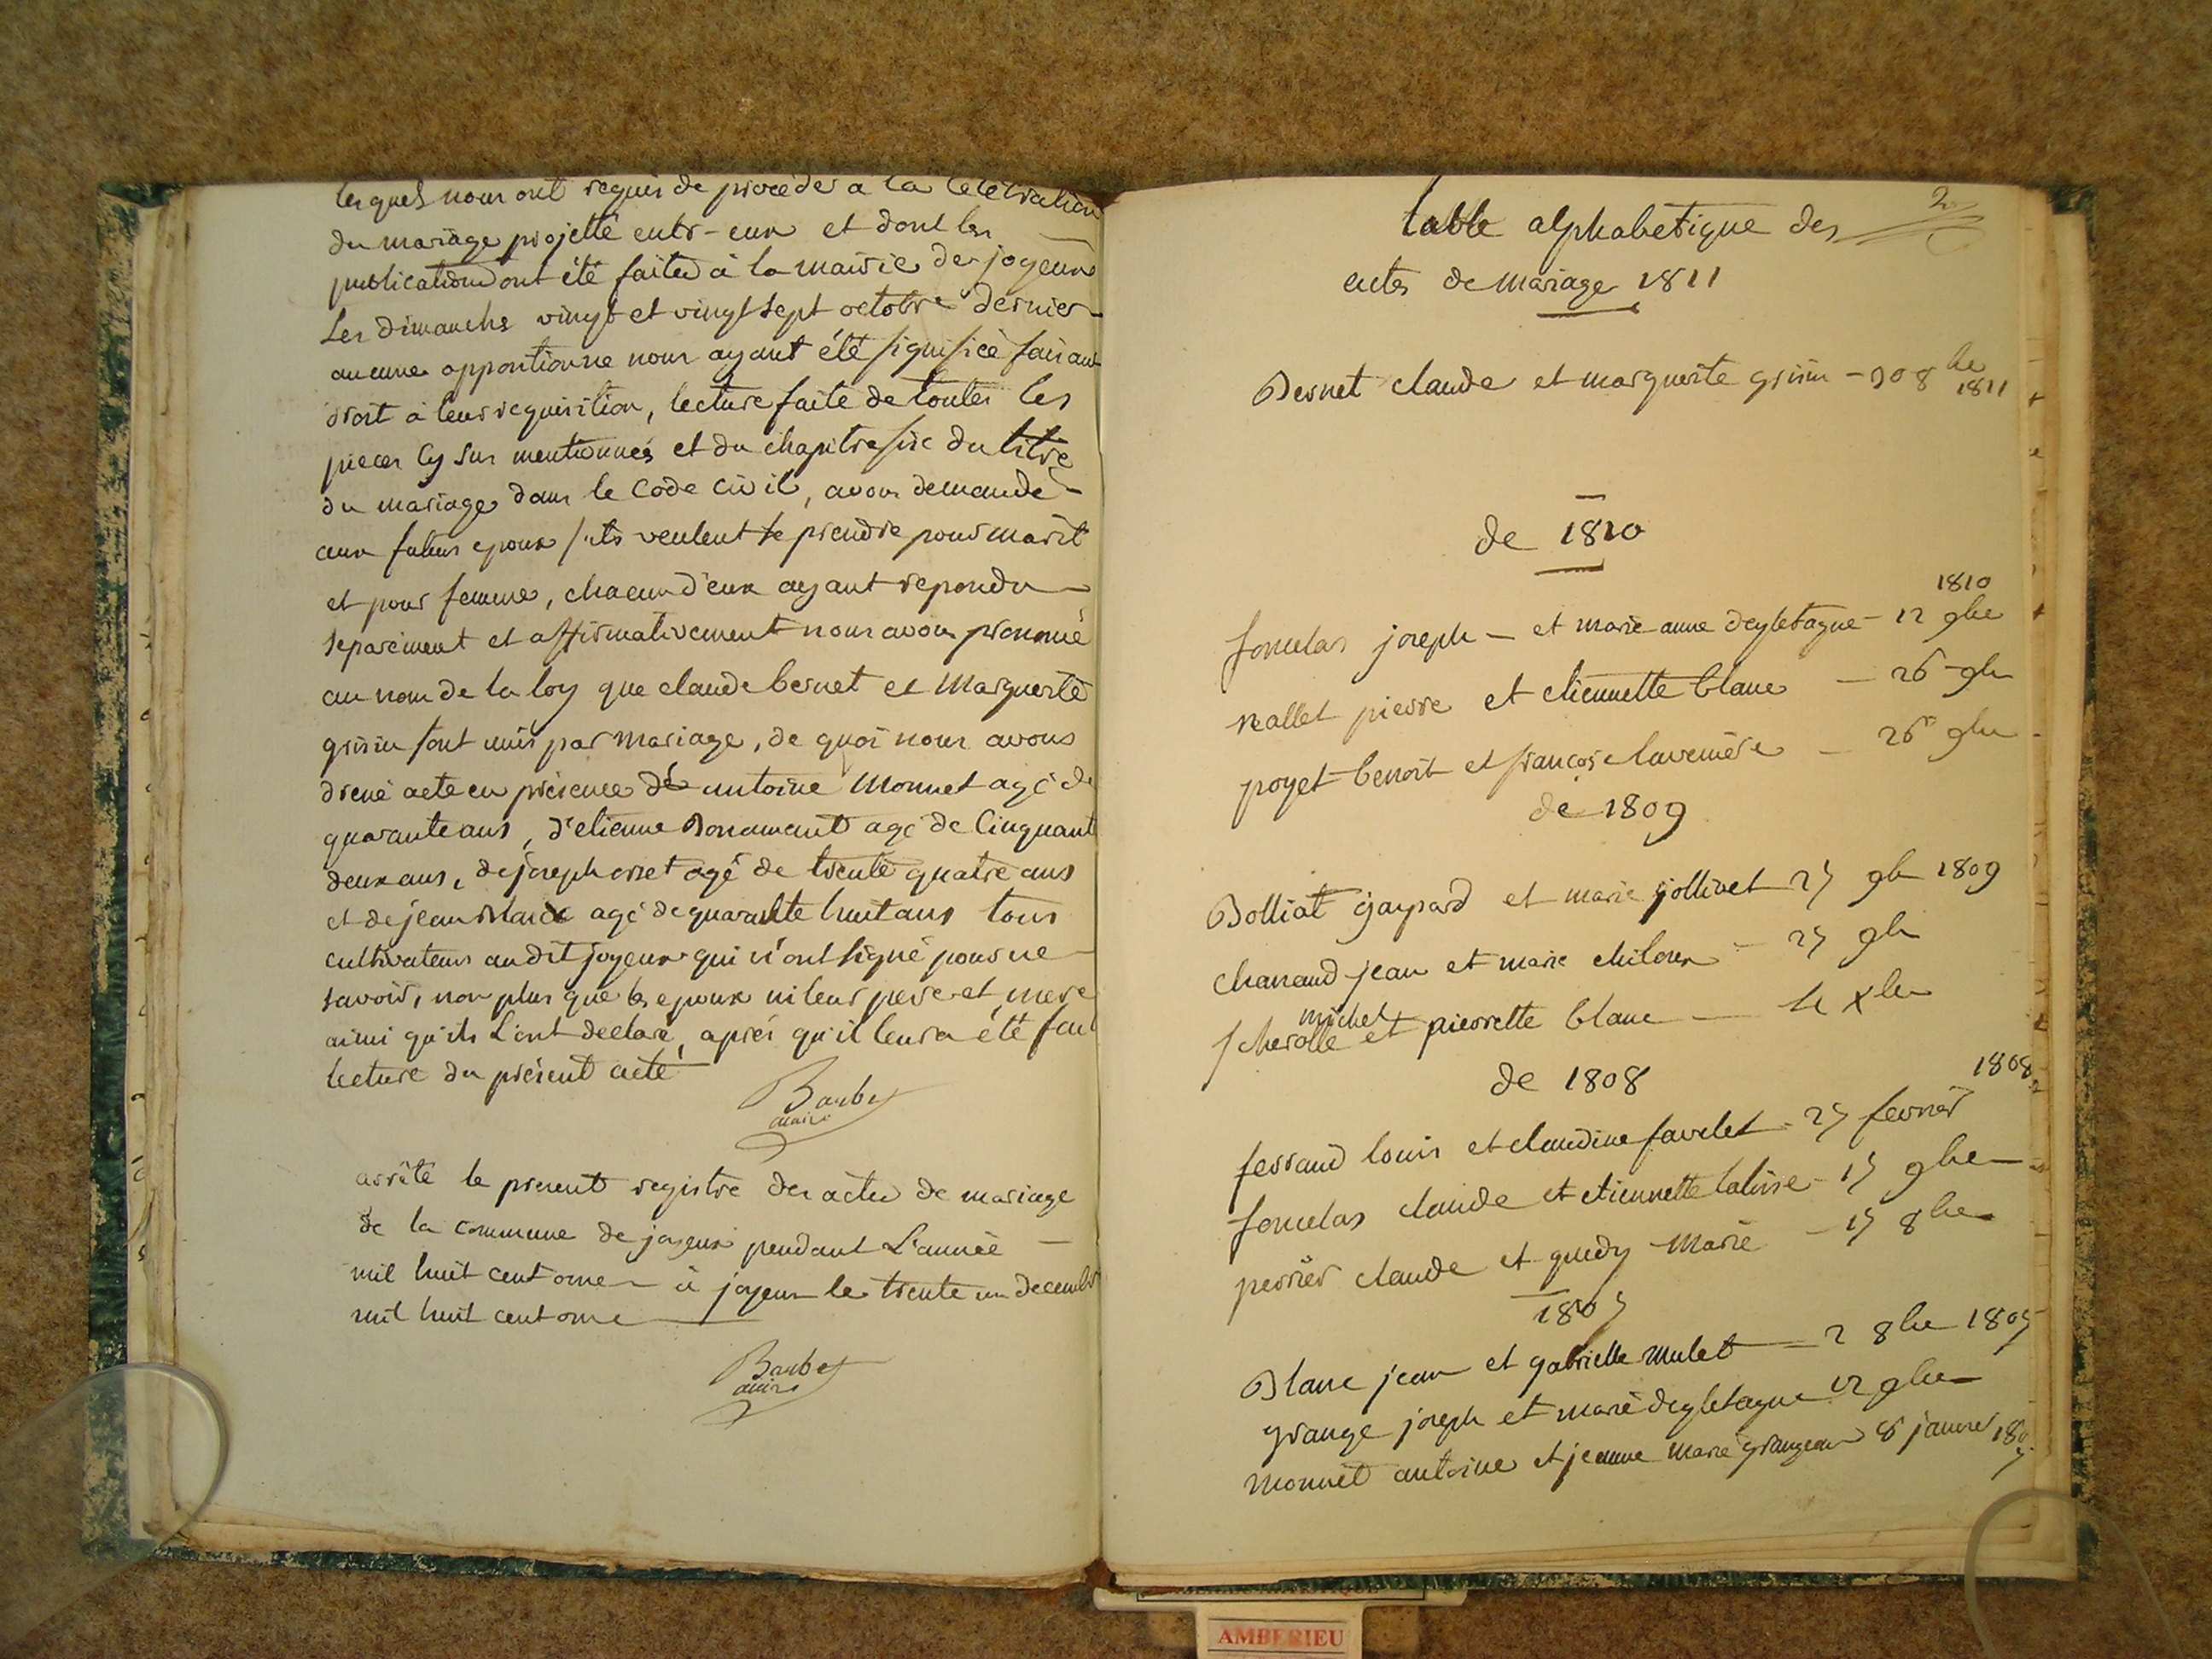 lesquels nous ont requis de proceder a la celebration
du mariage projetté entr-eux et dont les
publications ont été faites à la mairie de joyeux
Les dimanche vingt et vingt sept octobre dernier
aucune opposition ne nous ayant été signifiée faisant
droit à leur requisition, lecture faite de toutes les
pieces cy sus mentionnés et du chapitre six du titre
du mariage dans le Code civil, avons demandé
aux futurs epoux s'ils veulent se prendre pour marit
et pour femme, chacun d'eux ayant repondu
separement et affirmativement nous avons prononcé
au nom de la loy que claude bernet et Marguerite
grisin sont unis par mariage, de quoi nous avons
dressé acte en présence de antoine Monnet agé de
quarante ans, d'etienne Bonamant agé de Cinquante
deux ans, de joseph orset agé de trente quatre ans
et de jean blanc agé de quarante huit ans tous
cultivateurs au dit joyeux qui n'ont signé pour ne
savoir, non plus que les epoux ni leur pere et mere
ainsi qu'ils L'ont declaré, aprés qu'il leur a été fait
lecture du présent acte
Barbet
maire
arrêté le present registre des actes de mariage
de la commune de joyeux pendant L'année
mil huit cent onze à joyeux le trente un decembre
mil huit cent onze
Barbet
maire
2
table alphabetique des
actes de mariage 1811
Bernet claude et marguerite grisin - 30 8bre
1811
de 1810
1810
joseph - et marie anne - 12 9bre
pierre et etiennette blanc - 26 9bre
poyet benoit et françoise laverniere - 26 9bre
de 1809
Bolliat gaspard et marie jollivet 27 9bre 1809
chanaud jean et marie - 27 9bre
michel
et pierrette blanc - 4 xbre
de 1808
1808
ferrand louis et claudine favelet - 27 fevrier
claude et etiennette - 17 9bre
perrier claude et Marie - 17 8bre
1807
Blanc jean et gabrielle mulet - 2 8bre 1807
grange joseph et marie 12 9bre
Monnet antoine et jeanne marie grangeon 8 janvier 1807
AMBERIEU